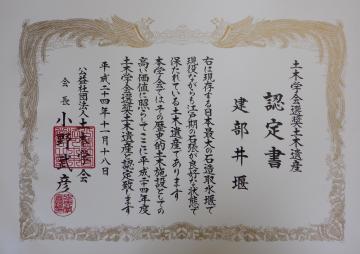 土木学会選奨土木遺産
認定書
建部井堰
右は現存する日本最大の石造取水堰で
現役ながらも江戸期の石張が良好な状態で
保たれている土木遺産であります
本学会ではその歴史的土木施設としての
高い価値に照らしてここに平成二十四年度
土木学会選奨土木遺産に認定致します
平成二十四年十一月十八日
公益社団法人土木学会
会長 小野武彦